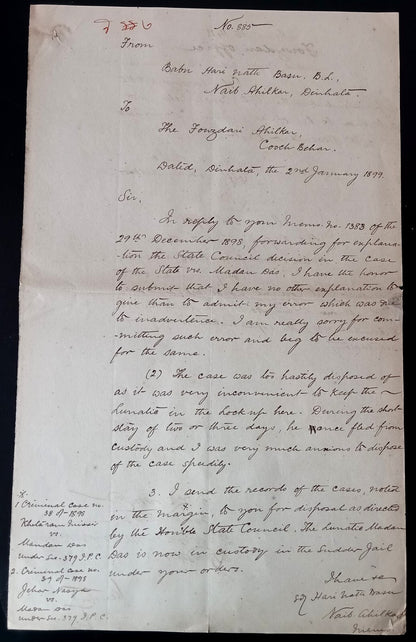 No. 885
From
Babu Hari Nath Basu, B.L,
Naib Ahilkar, Dinhata.
To
The Fouzdari Ahilkar,
Cooch Behar.
Dated, Dinhata, the 2nd January 1899.
Sir,
In reply to your Memo. no. 1383 of the
29th December 1898, forwarding for explana-
-tion the State Council decision in the case
of the State vrs. Madan Das, I have the honor
to submit that I have no other explanation to
give than to admit my error which was due
to inadvertence. I am really sorry for com-
-mitting such error and beg to be excused
for the same.
(2) The case was too hastily disposed of
as it was very inconvenient to keep the
Lunatic in the Lock up here. During the short
stay of two or three days, he once fled from
custody and I was very much anxious to dispose
of the case speedily.
3. I send the records of the cases, noted
in the Margin, to you for disposal as directed
by the Hon'ble State Council. The Lunatic Madan
Das is now in custody in the Sudder Jail
under your orders.
1 Criminal Case no.
38 of 1898
Misser
vs.
Mandan Das
under Sec. 379 I.P.C.
2. Criminal Case no.
39 of 1898
Nasya
vs.
Madan Das
under Sec. 379 I.P.C.
I have &c
Sd/ Hari Nath Basu
Naib Ahilkar